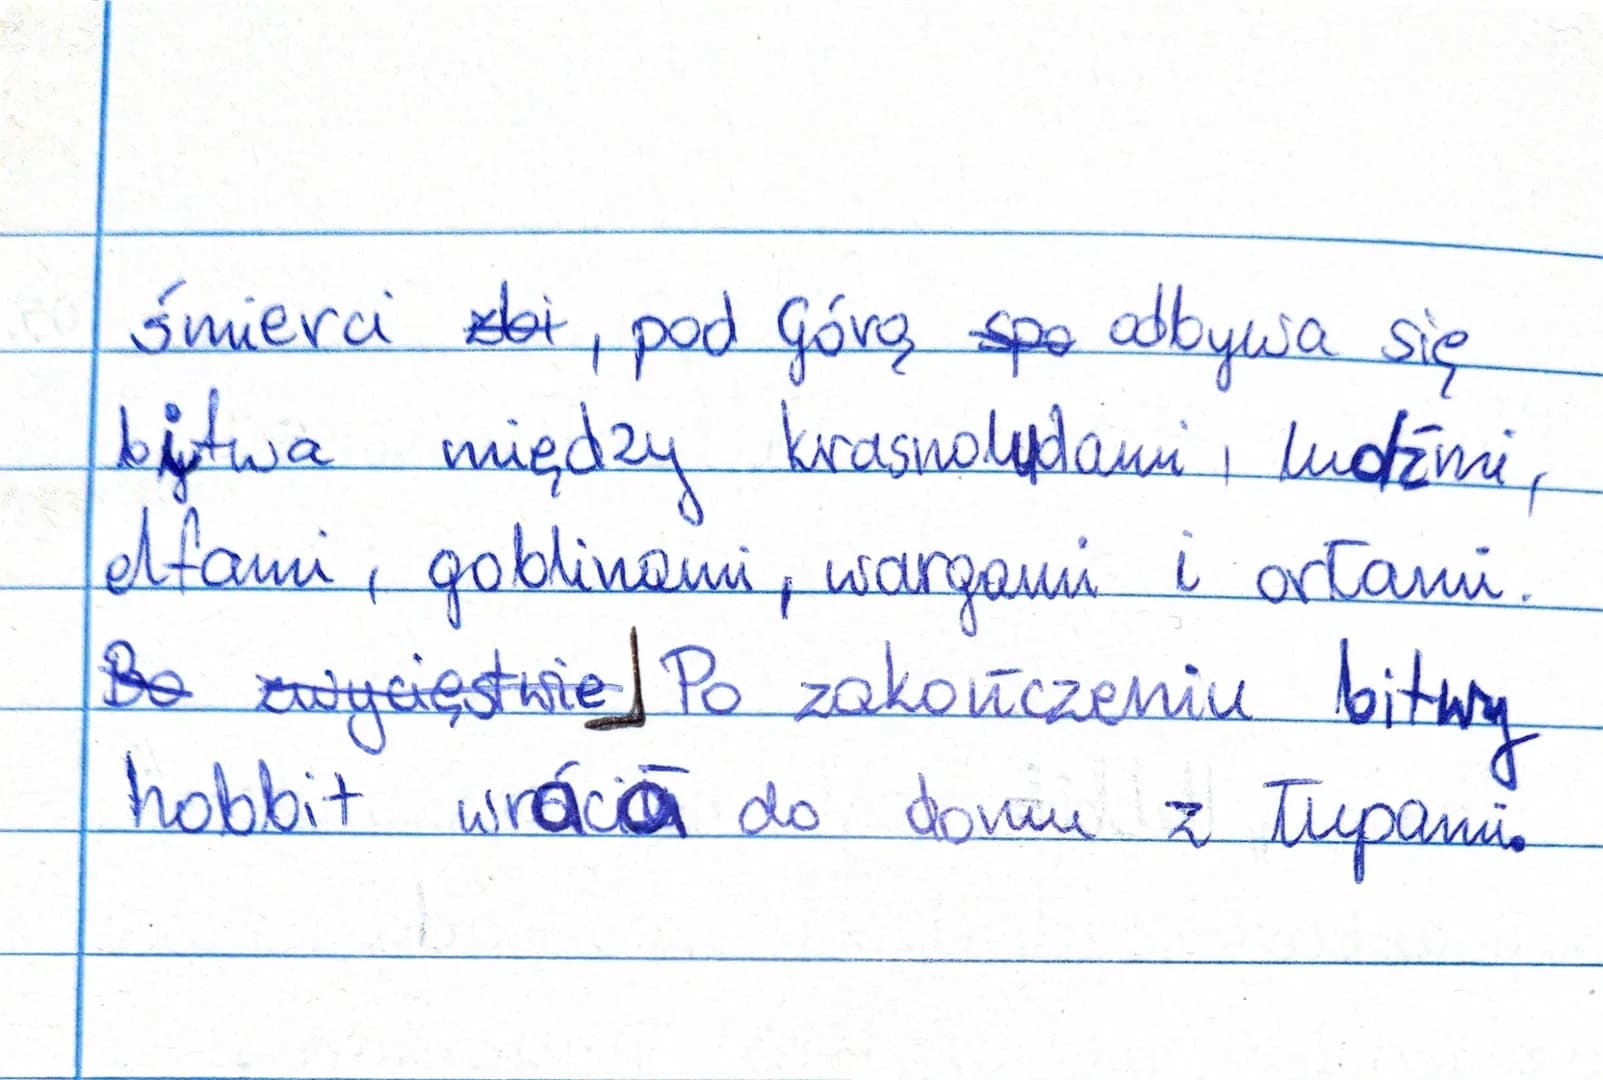 śmierci zbi, pod Górą spo odbywa się
bitwa między krasnoludami, ludźmi,
elfami, goblinami, wargami i orłami.
Bo zwycięstwie Po zakończeniu bitwy
hobbit wrócił do domu z łupami.